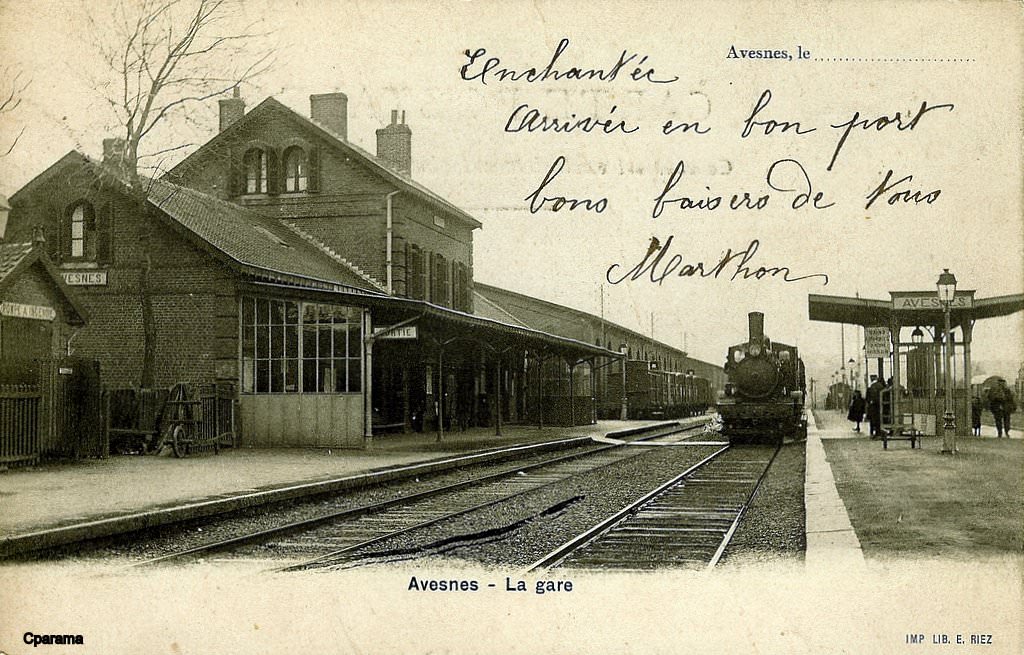 Avesnes, le
Enchantée
Arrivée en bon port
bons baisers de Nous
Marthon
AVESNES
AVESNES
SORTIE
POMPE A INCENDIE
Avesnes - La gare
Cparama
IMP LIB. E. RIEZ